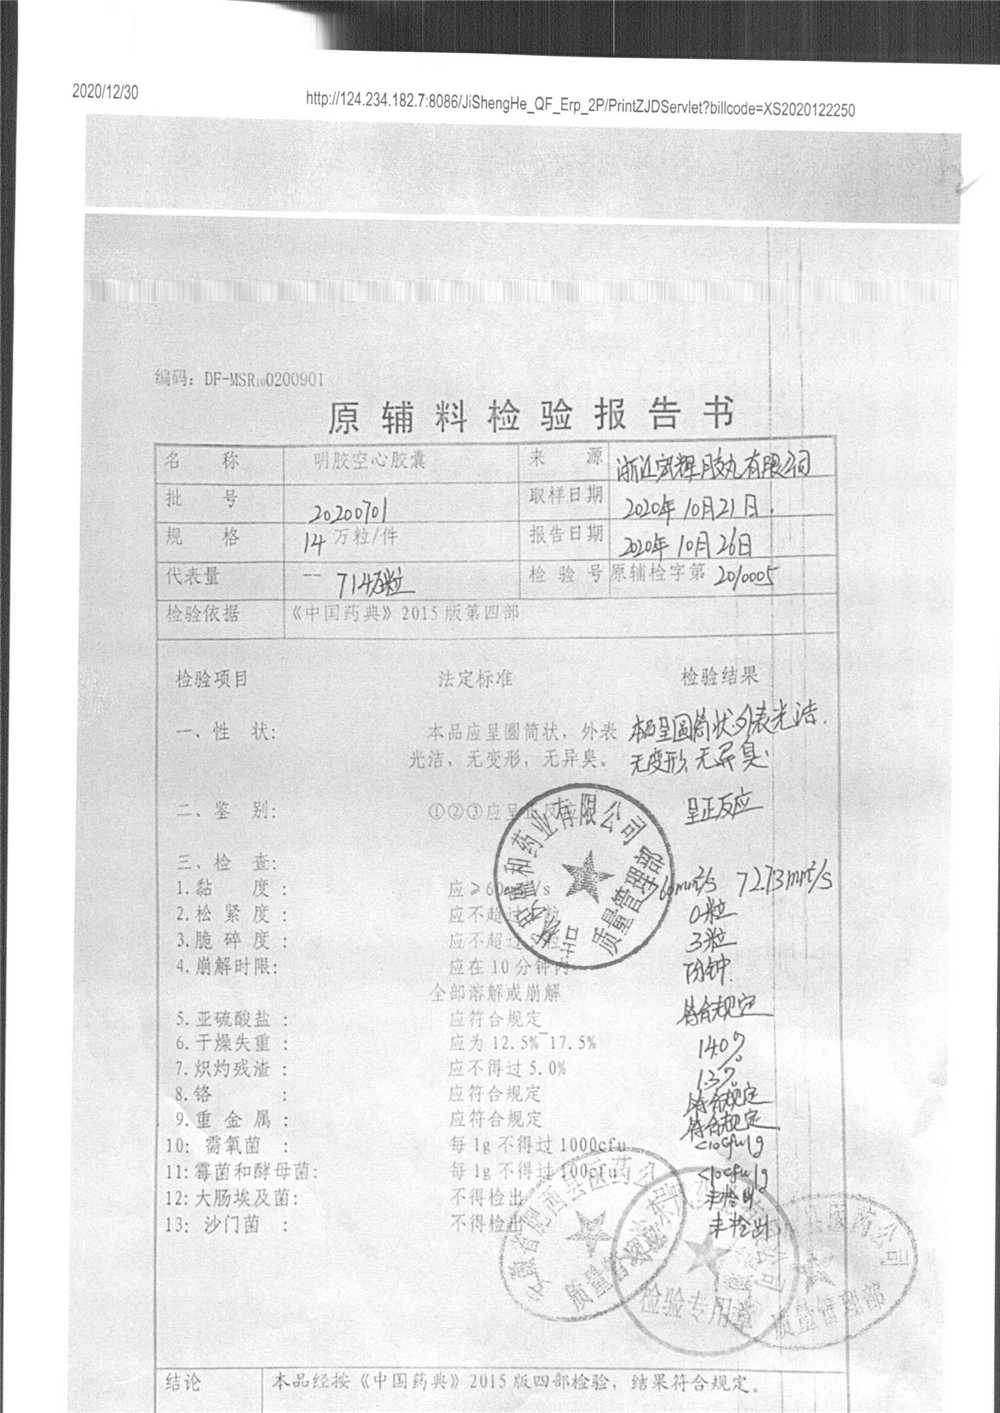 2020/12/30
http://124.234.182.7:8086/JiShengHe_QF_Erp_2P/PrintZJDServlet?billcode=XS2020122250
编码: DF-MSR100200901
原辅料检验报告书
名 称 明胶空心胶囊 来 源 浙江 胶丸有限公司
批 号 20200701 取样日期 2020年10月21日
规 格 14万粒/件 报告日期 2020年10月26日
代表量 -- 714万粒 检 验 号 原辅检字第 2010005
检验依据 《中国药典》2015版第四部
检验项目 法定标准 检验结果
一、性 状: 本品应呈圆筒状, 外表 本品呈圆筒状,外表光洁.
光洁, 无变形, 无异臭。 无变形,无异臭.
二、鉴 别: ①②③应呈正反应 呈正反应
三、检 查:
1.黏 度: 应≥60 /s 60mm²/s 72.73mm²/s
2.松紧度: 应不超过 粒 0粒
3.脆碎度: 应不超过5粒 3粒
4.崩解时限: 应在10分钟内 7分钟.
全部溶解或崩解
5.亚硫酸盐: 应符合规定 符合规定
6.干燥失重: 应为12.5%~17.5% 14.0%
7.炽灼残渣: 应不得过5.0% 1.3%
8.铬 : 应符合规定 符合规定
9.重金属: 应符合规定 符合规定
10: 需氧菌 : 每1g不得过1000cfu <10cfu/g
11:霉菌和酵母菌: 每1g不得过100cfu <10cfu/g
12:大肠埃及菌: 不得检出 未检出
13: 沙门菌 : 不得检出 未检出
和药业有限公司
质量管理部
安徽省 医药公司
质量管理
检验专用章
医药公司
质量管理部
结论 本品经按《中国药典》2015版四部检验, 结果符合规定。